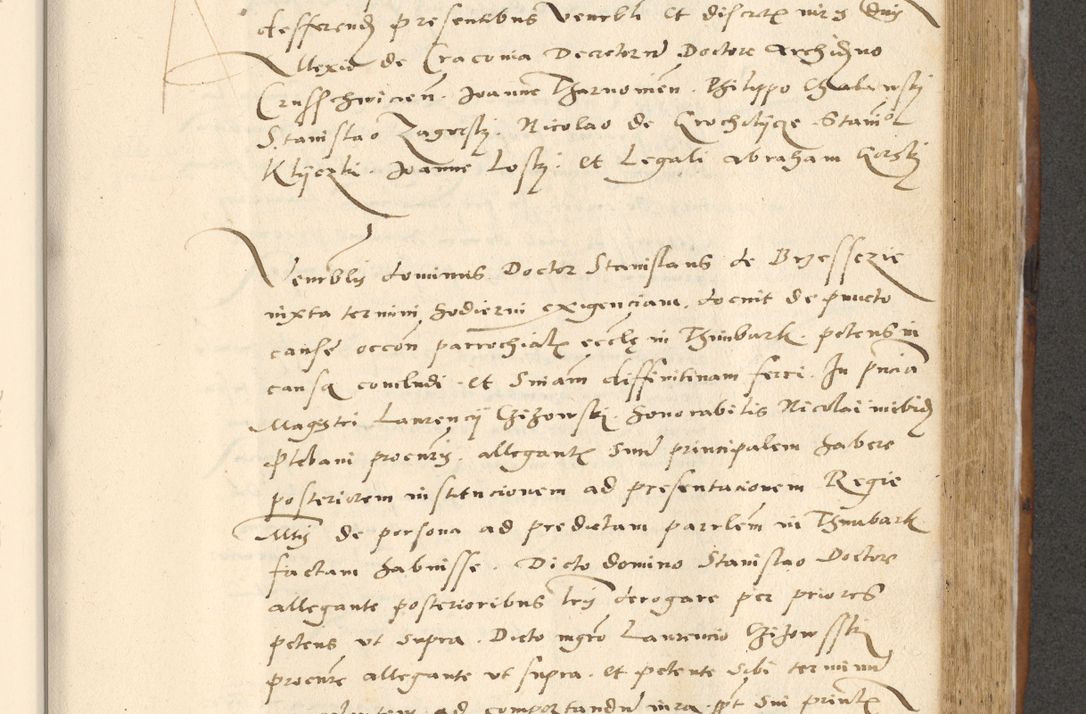 defferend presentibus Venerbli et discretis viris Dnis
Alexio de Cracovia Decretorum Doctore Archidno
Crusschwicien. Joanne Tharnowien. Philippo
Stanislao Zagorsky. Nicolao de Stanislo
Joanne Losky. et Legali Abraham Gorsky
Venerblis dominus Doctor Stanislaus de Brzesszie
iuxta termini hodierni exigenciam. docuit de puncto
cause occon parrochialis eccle in Thimbark. petens in
causa concludi. et Sniam diffinitivam ferri. In pncia
Magistri Laurencii Chizowski. honorabilis Nicolai
Plebani procuris. allegantis Suum principalem habere
posteriorem institucionem ad presentacionem Regie
Mtis de persona ad predictam parrlem in Thimbark
factam habuisse. Dicto domino Stanislao Doctore
allegante posterioribus lris derogare per priores
petens ut supra. Dicto mgro Laurencio Chizowsski
procure allegante ut supra. et petente sibi terminum
ad comportandum iura. ppt Sui prinlis